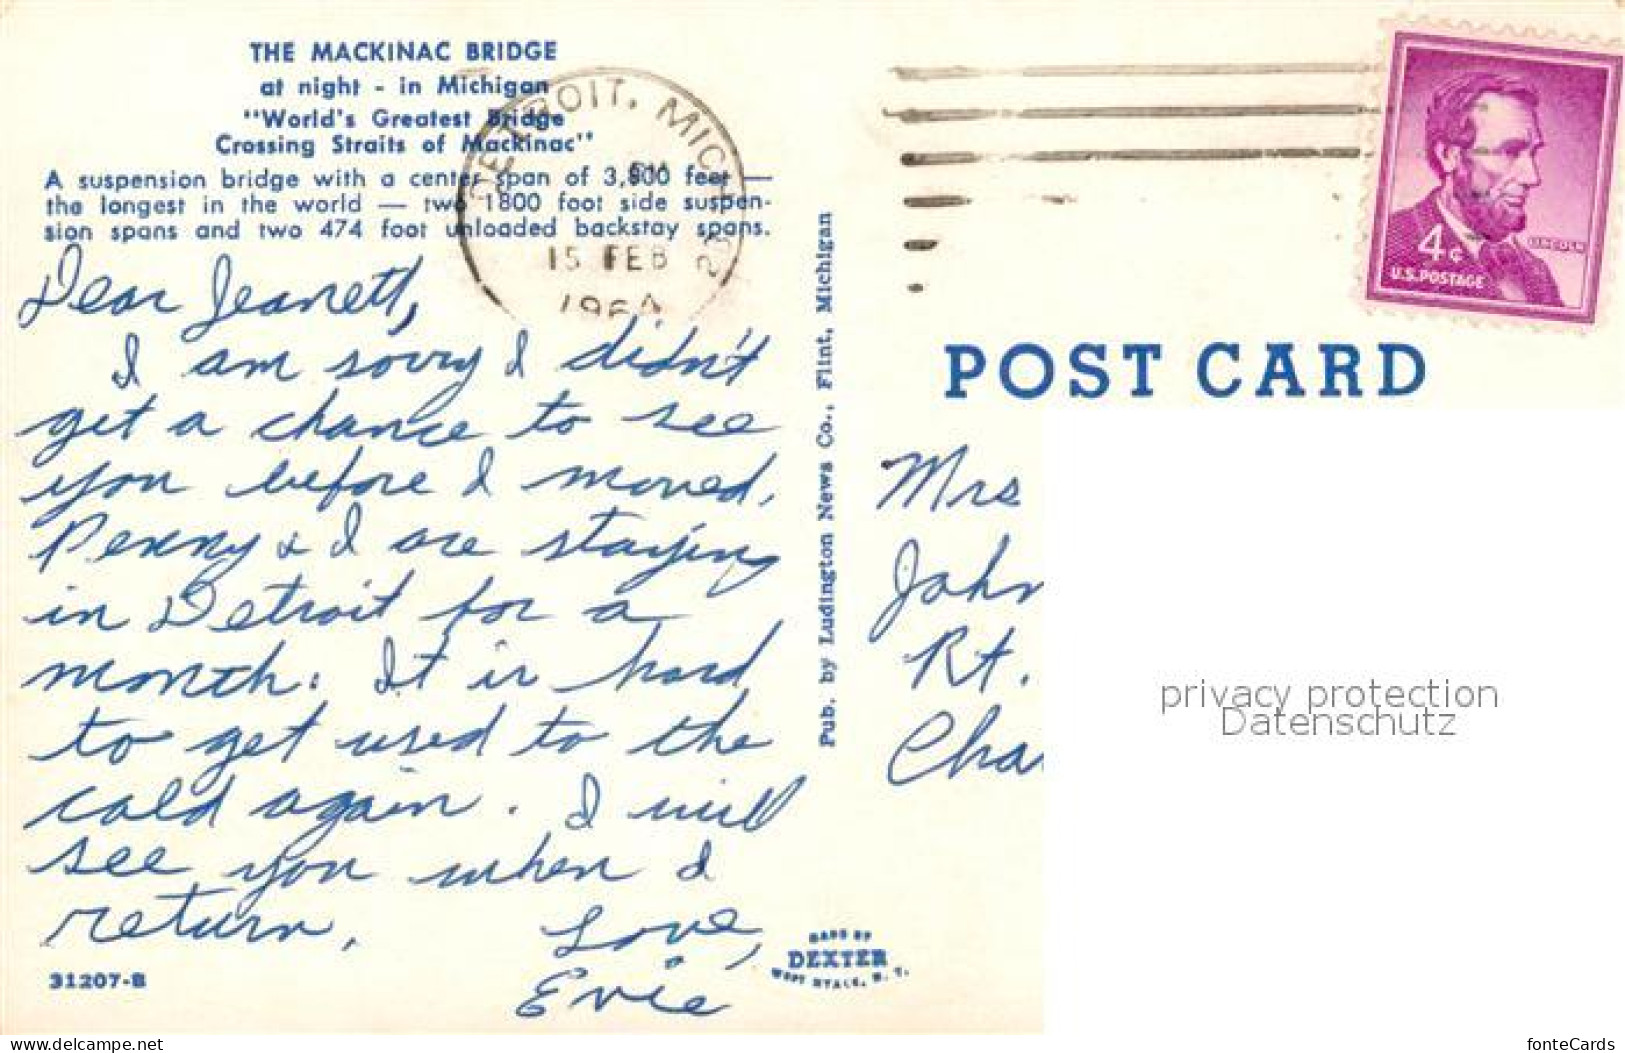 THE MACKINAC BRIDGE
at night - in Michigan
"World's Greatest Bridge
Crossing Straits of Mackinac"
A suspension bridge with a center span of 3,800 feet —
the longest in the world — two 1800 foot side suspen-
sion spans and two 474 foot unloaded backstay spans.
DETROIT, MICH
PM
15 FEB
1964
4¢
LINCOLN
U.S. POSTAGE
Dear Jeanett,
I am sorry I didn't
get a chance to see
you before I moved,
Penny & I are staying
in Detroit for a
month. It is hard
to get used to the
cold again. I will
see you when I
return.
Love,
Evie
31207-B
Pub. by Ludington News Co., Flint, Michigan
MADE BY
DEXTER
WEST NYACK, N. Y.
POST CARD
Mrs
John
Rt.
Cha
privacy protection
Datenschutz
delcampe.net
jeanmarie
fonteCards